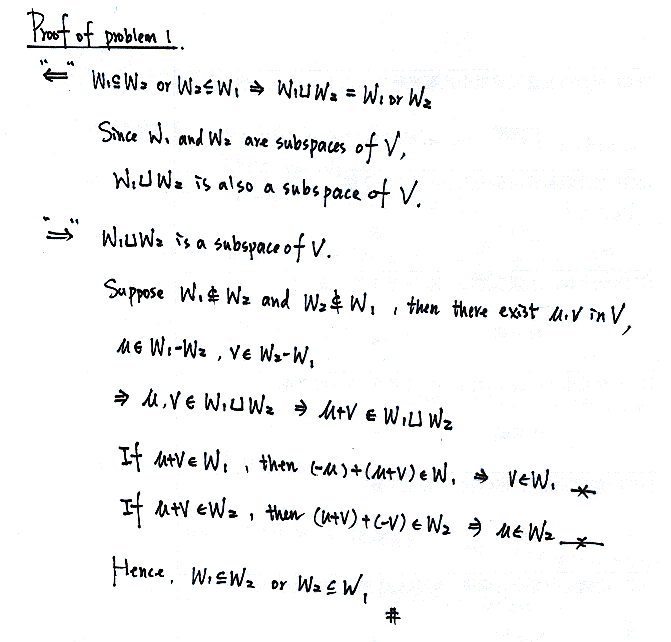 Proof of problem 1.
"⇐" W₁⊆W₂ or W₂⊆W₁ ⇒ W₁∪W₂ = W₁ or W₂
Since W₁ and W₂ are subspaces of V,
W₁∪W₂ is also a subspace of V.
"⇒" W₁∪W₂ is a subspace of V.
Suppose W₁⊈W₂ and W₂⊈W₁, then there exist u,v in V,
u∈W₁-W₂, v∈W₂-W₁
⇒ u,v∈W₁∪W₂ ⇒ u+v∈W₁∪W₂
If u+v∈W₁, then (-u)+(u+v)∈W₁ ⇒ v∈W₁ ※
If u+v∈W₂, then (u+v)+(-v)∈W₂ ⇒ u∈W₂ ※
Hence, W₁⊆W₂ or W₂⊆W₁
#